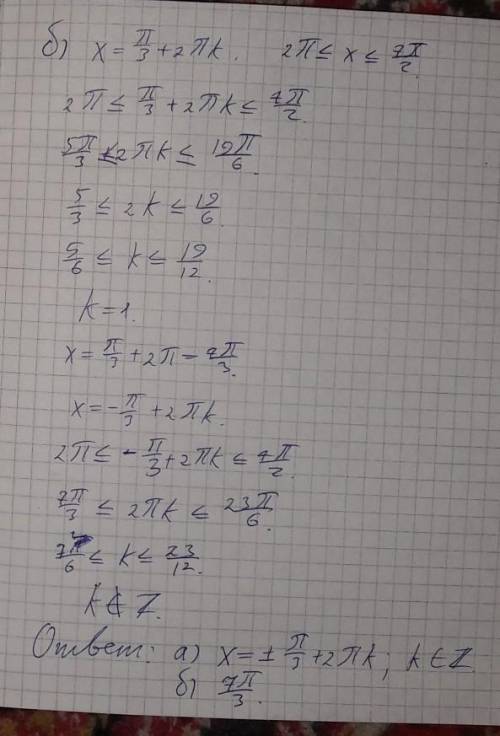 б) x = π/3 + 2πk. 2π ≤ x ≤ 7π/2.
2π ≤ π/3 + 2πk ≤ 7π/2.
5π/3 ≤ 2πk ≤ 19π/6.
5/3 ≤ 2k ≤ 19/6.
5/6 ≤ k ≤ 19/12.
k = 1.
x = π/3 + 2π = 7π/3.
x = -π/3 + 2πk.
2π ≤ -π/3 + 2πk ≤ 7π/2.
7π/3 ≤ 2πk ≤ 23π/6.
7/6 ≤ k ≤ 23/12.
k ∉ Z.
Ответ: а) x = ± π/3 + 2πk; k ∈ Z
б) 7π/3.